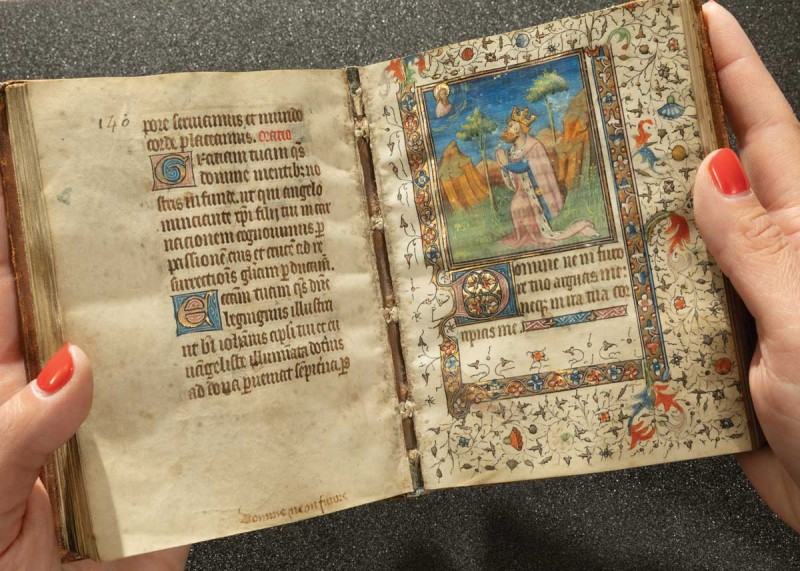 140
pore seruiamus et mundo
corde placeamus. Oratio
Gratiam tuam qs
domine mentibus no
stris infunde. ut qui angelo
nunciante xpi filii tui incar
nacionem cognouimus p
passione eius et crucē ad re
surrectiōis gliam pducam.
Ecciam tuam qs dne
benignus illustra
ut bti iohanis apli tui et eu
uāgeliste illuminata doctrīs
ad dona pueniat sepiterna p
Domine ne in furore
Domine ne in furo
re tuo arguas me:
neqz in ira tua cor
ripias me